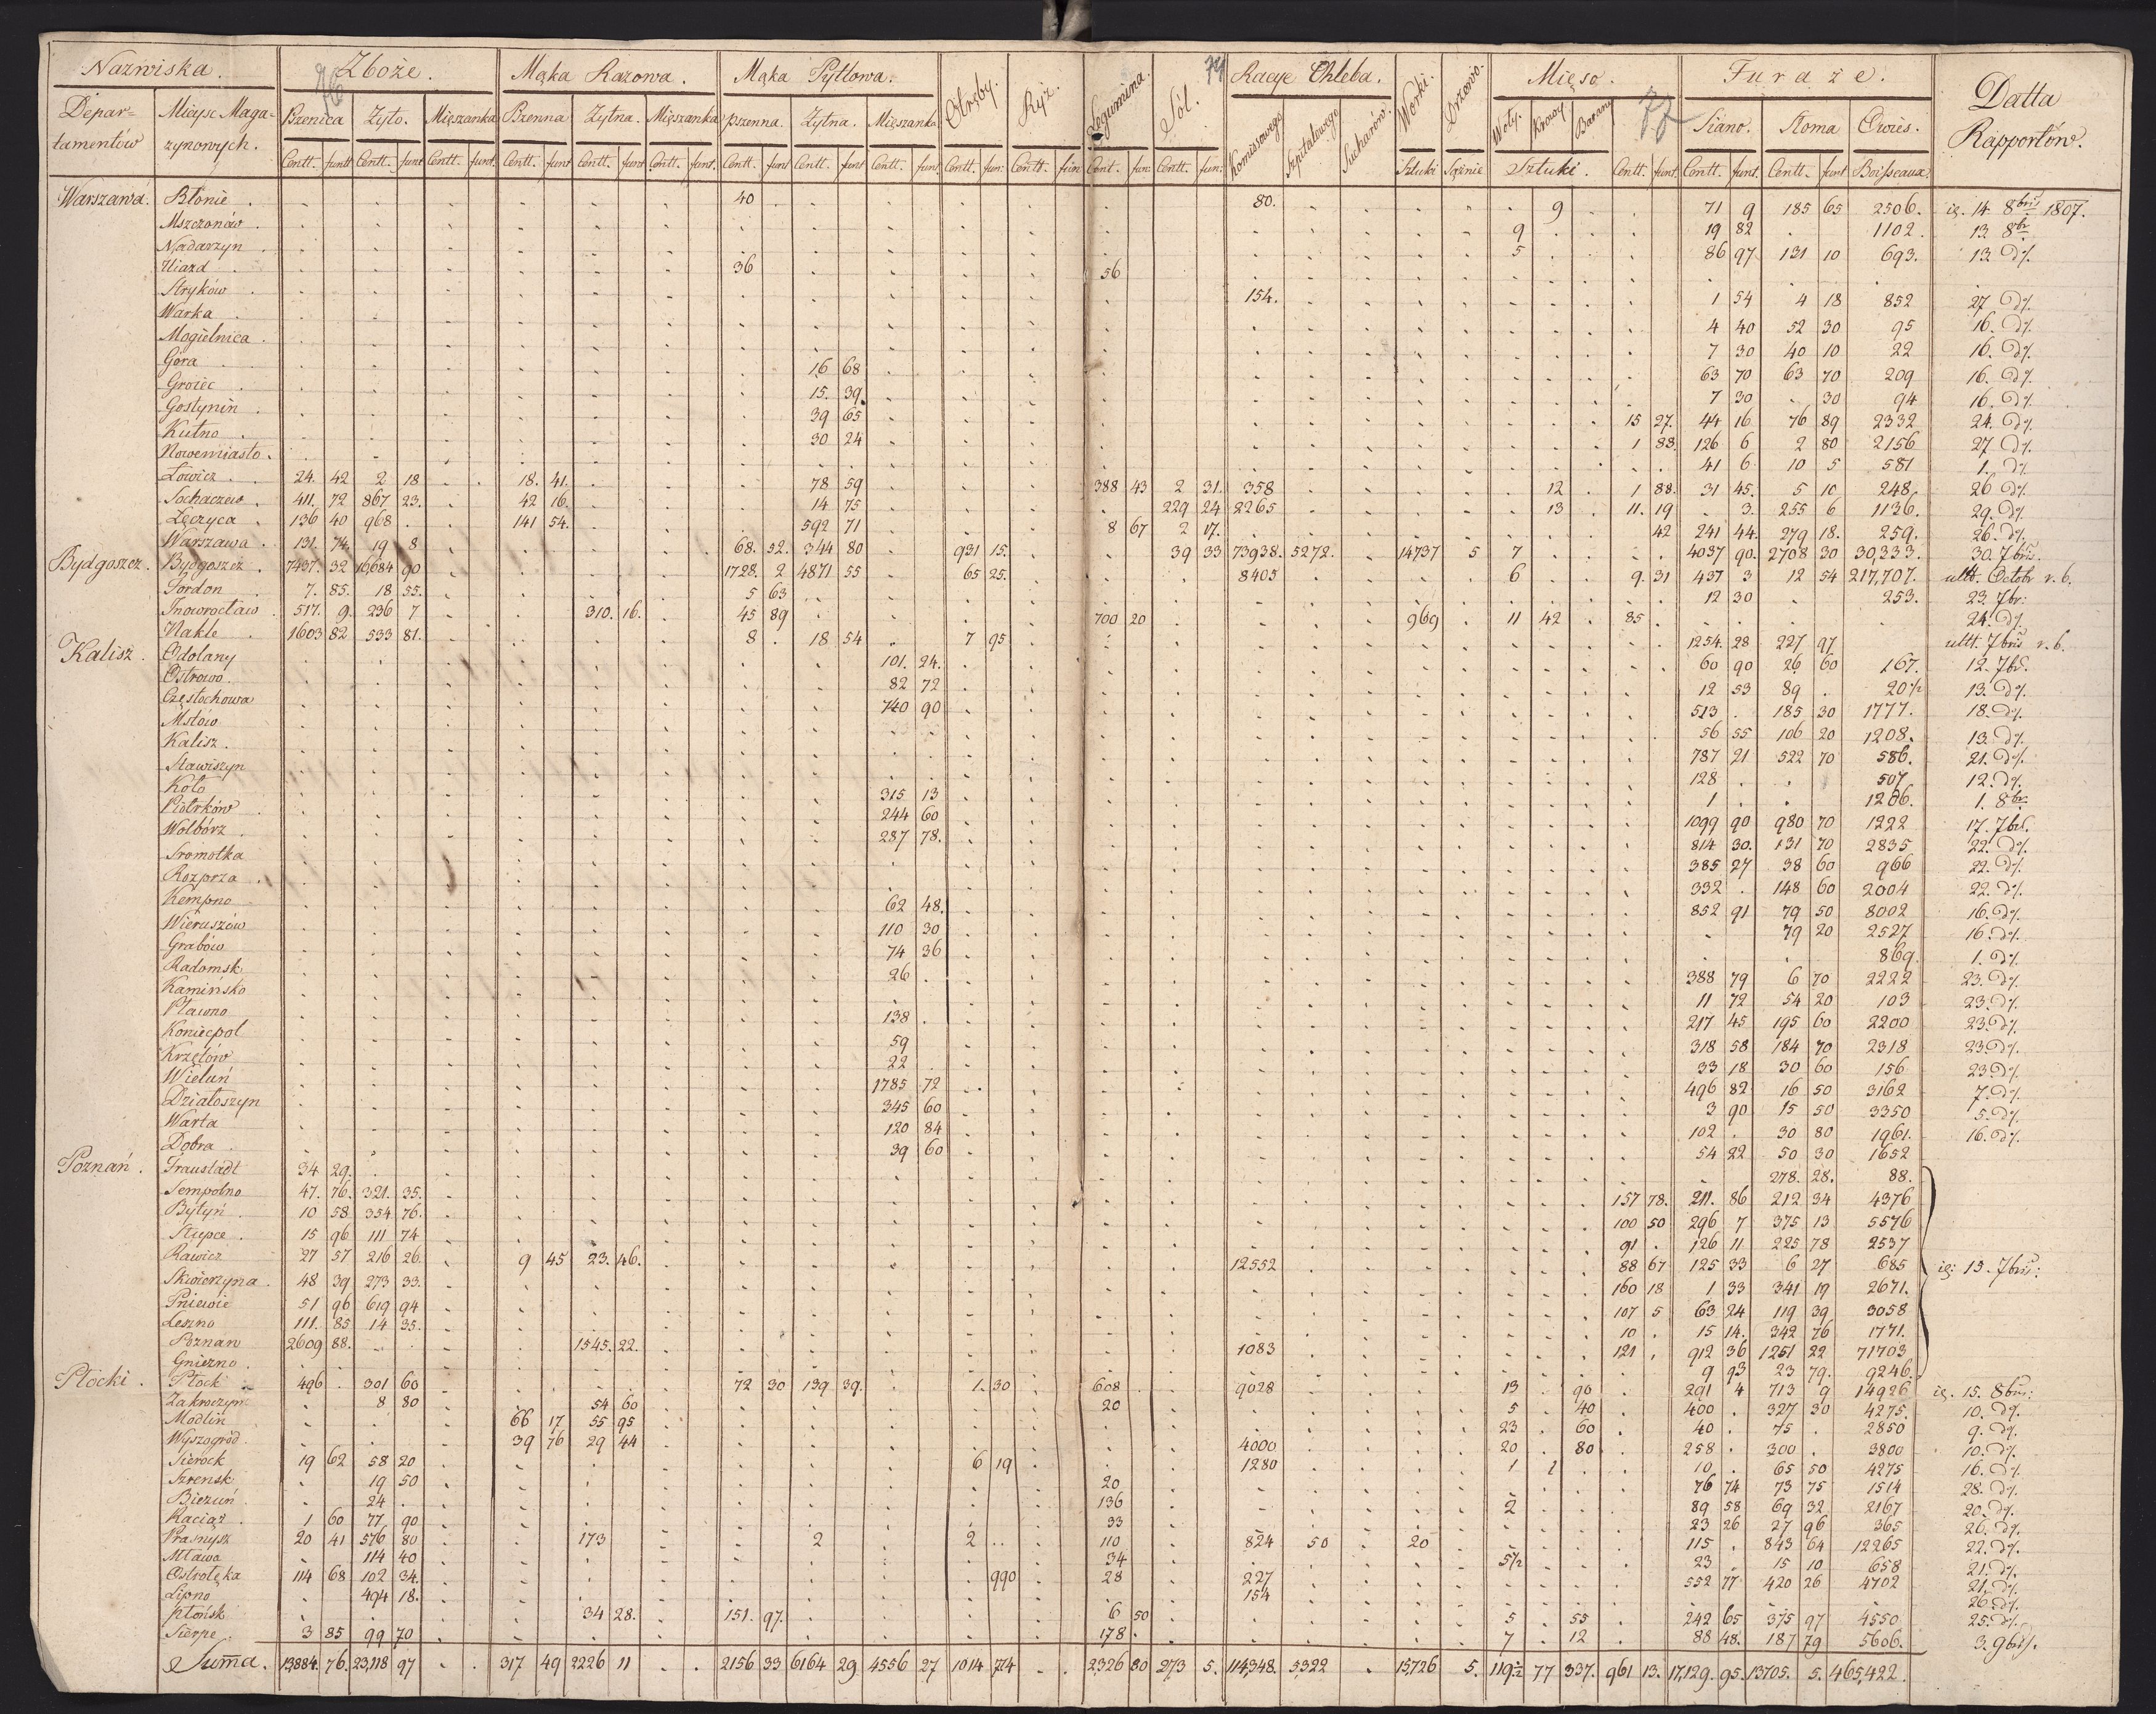 Nazwiska. Zboże. Mąka Razowa. Mąka Pytlowa. Otręby. Ryż. Legumina. Sól. Racye Chleba. Worki. Drzewo. Mięso. Furaże. Datta Rapportów.
76 77 77
Depar= tamentów Mieysc Maga= zynowych. Pszenica Żyto. Mięszanka Pszenna Żytna. Mięszanka pszenna. Żytna. Mięszanka Komissowego Szpitalowego Sucharów. Woły. Krowy Barany Siano. Słoma Owies.
Centt. funtt Centt. funt Centt. funt. Centt. funt Centt. funt Centt. funt. Centt. funt Centt. funt Centt. funt Centt. fun: Centt. fun Cent. fun: Centt. fun: Sztuki Sążnie Sztuki. Centt. funt Centt. funt. Centt. funt Boisseaux.
Warszawa. Błonie . 40 80. 9 71 9 185 65 2506. ig. 14 8bris 1807.
Mszczonów . 9 19 82 1102. 13 8br
Nadarzyn . 5 86 97 131 10 693. 13 d%.
Uiazd . 36 56
Stryków . 154. 1 54 4 18 852 27 d%.
Warka . 4 40 52 30 95 16. d%.
Mogielnica . 7 30 40 10 22 16. d%.
Góra . 16 68 63 70 63 70 209 16. d%.
Groiec . 15. 39. 7 30 30 94 16. d%.
Gostynin . 39 65 15 27. 44 16 76 89 2332 24. d%.
Kutno . 30 24 1 88. 126 6 2 80 2156 27 d%.
Nowemiasto . 41 6 10 5 581 1. d%
Łowicz . 24. 42 2 18 18. 41. 78 59 388 43 2 31. 358 12 1 88. 31 45. 5 10 248. 26 d%.
Sochaczew . 411. 72 867 23. 42 16. 14 75 229 24 2265 13 11. 19 3. 255 6 1136. 29. d%.
Łęczyca . 136 40 968 . 141 54. 592 71 8 67 2 17. 42 241 44. 279 18. 259. 26. d%.
Warszawa . 131. 74. 19 8 68. 52. 344 80 931 15. 39 33 73938. 5272. 14737 5 7 4037 90. 2708 30 30,333. 30. 7bris.
Bydgoszcz . Bydgoszcz . 7437. 32 16,684 90 1728. 2 4871 55 65 25. 8405 6 9. 31 437 3 12 54 217,707. ultt. Octobr v. b.
Fordon . 7. 85. 18 55. 5 63 12 30 253. 23. 7br:
Jnowrocław . 517. 9. 236 7 310. 16. 45 89 700 20 969 11 42 85. 24. d%.
Nakle . 1603 82 533 81. 8 . 18 54 7 95 1254. 28 227 97 ultt. 7bris v. b.
Kalisz . Odolany 101. 24. 60 90 26 60 167. 12. 7br.
Ostrowo. 82 72 12 53 89 . 20½ 13. d%.
Częstochowa 740 90 513 . 185 30 1777. 18. d%.
Mstów 56 55 106 20 1208. 13. d%.
Kalisz . 787 21 522 70 586. 21. d%.
Stawiszyn 128 507 12. d%.
Koło 315 13 1 1206. 1. 8br.
Piotrków 244 60 1099 90 980 70 1222 17. 7br.
Wolbórz . 287 78. 814 30. 131 70 2835 22. d%.
Sromotka 385 27 38 60 966 22. d%.
Rozprza . 332 . 148 60 2004 22. d%.
Kempno 62 48. 852 91 79 50 8002 16. d%.
Wieruszów 110 30 79 20 2527 16. d%.
Grabów 74 36 869. 1. d%.
Radomsk 26 . 388 79 6 70 2222 23. d%.
Kamińsko 11 72 54 20 103 23. d%.
Pławno 138 . 217 45 195 60 2200 23. d%.
Koniecpol 59 318 58 184 70 2318 23. d%.
Krzętów 22 33 18 30 60 156 23. d%.
Wieluń 1785 72 496 82 16 50 3162 7. d%.
Działoszyn 345 60 3 90 15 50 3350 5. d%.
Warta 120 84 102 . 30 80 1961. 16. d%.
Dobra . 39 60 54 22 50 30 1652
Poznań . Fraustadt 34 29. 278. 28. 88.
Sempolno 47. 76. 321. 35. 157 78. 211. 86 212 34 4376
Bytyń . 10 58 354 76. 100 50 296 7 375 13 5576
Słupce . 15 96 111 74 91 . 126 11 225 78 2537
Rawicz 27 57 216 26. 9 45 23. 46. 12552 88 67 125 33 6 27 685 ig: 15. 7bris:
Skwierzyna . 48 39 273 33. 160 18 1 33 341 19 2671.
Pniewie 51 96 619 94 107 5 63 24 119 39 3058
Leszno 111. 85 14 35. 10 . 15 14. 342 76 1771.
Poznan 2609 88. 1545. 22. 1083 121 . 912 36 1251 22 71703
Gniezno . 9 93 23 79. 9246
Płocki . Płock 496 . 301 60 72 30 139 39. 1. 30 608 . 9028 13 . 90 291 4 713 9 14926 ig. 15. 8bris:
Zakroczym 8 80 54 60 20 5 . 40 400 . 327 30 4275. 10. d%.
Modlin . 66 17 55 95 23 . 60 40 . 75 . 2850 9. d%.
Wyszogród . 39 76 29 44 4000 20 . 80 258 . 300 . 3800 10. d%.
Sierock 19 62 58 20 6 19 1280 1 1 10 . 65 50 4275 16. d%.
Szrensk 19 50 20 76 74 73 75 1514 28. d%.
Bieżuń . 24 . 136 2 89 58 69 32 2167 20. d%.
Raciąż . 1 60 77 90 33 23 26 27 96 365 26. d%.
Prasnysz 20 41 576 80 173 2 2 .. 110 824 50 20 115 . 843 64 12265 22. d%.
Mława 114 40 34 5½ 23 . 15 10 658 21. d%.
Ostrołęka 114 68 102 34. 990 28 227 552 77 420 26 4702 21. d%.
Lipno 494 18. 154 26. d%.
Płońsk 34 28. 151. 97. 6 50 5 . 55 242 65 375 97 4550 25. d%.
Sierpc . 3 85 99 70 178 . 7 . 12 88 48. 187 79 5606. 3. 9br%.
Summa . 13,884. 76. 23,118 97 317 49 2226 11 2156 33 6164 29 4556 27 1014 714 2326 80 273 5. 114,348. 5,322 15,726 5. 119½ 77 337. 961 13. 17,129. 95. 13705. 5. 465,422.